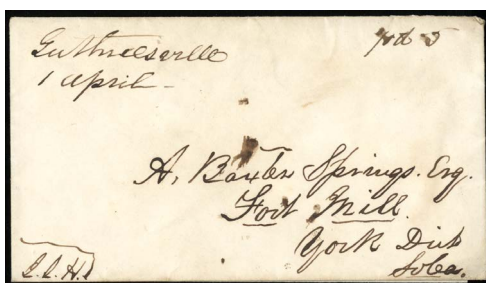 Guthriesville
pd 5
1 April -
A. Baxter Springs. Esq.
Fort Mill.
York Dist
So Ca.